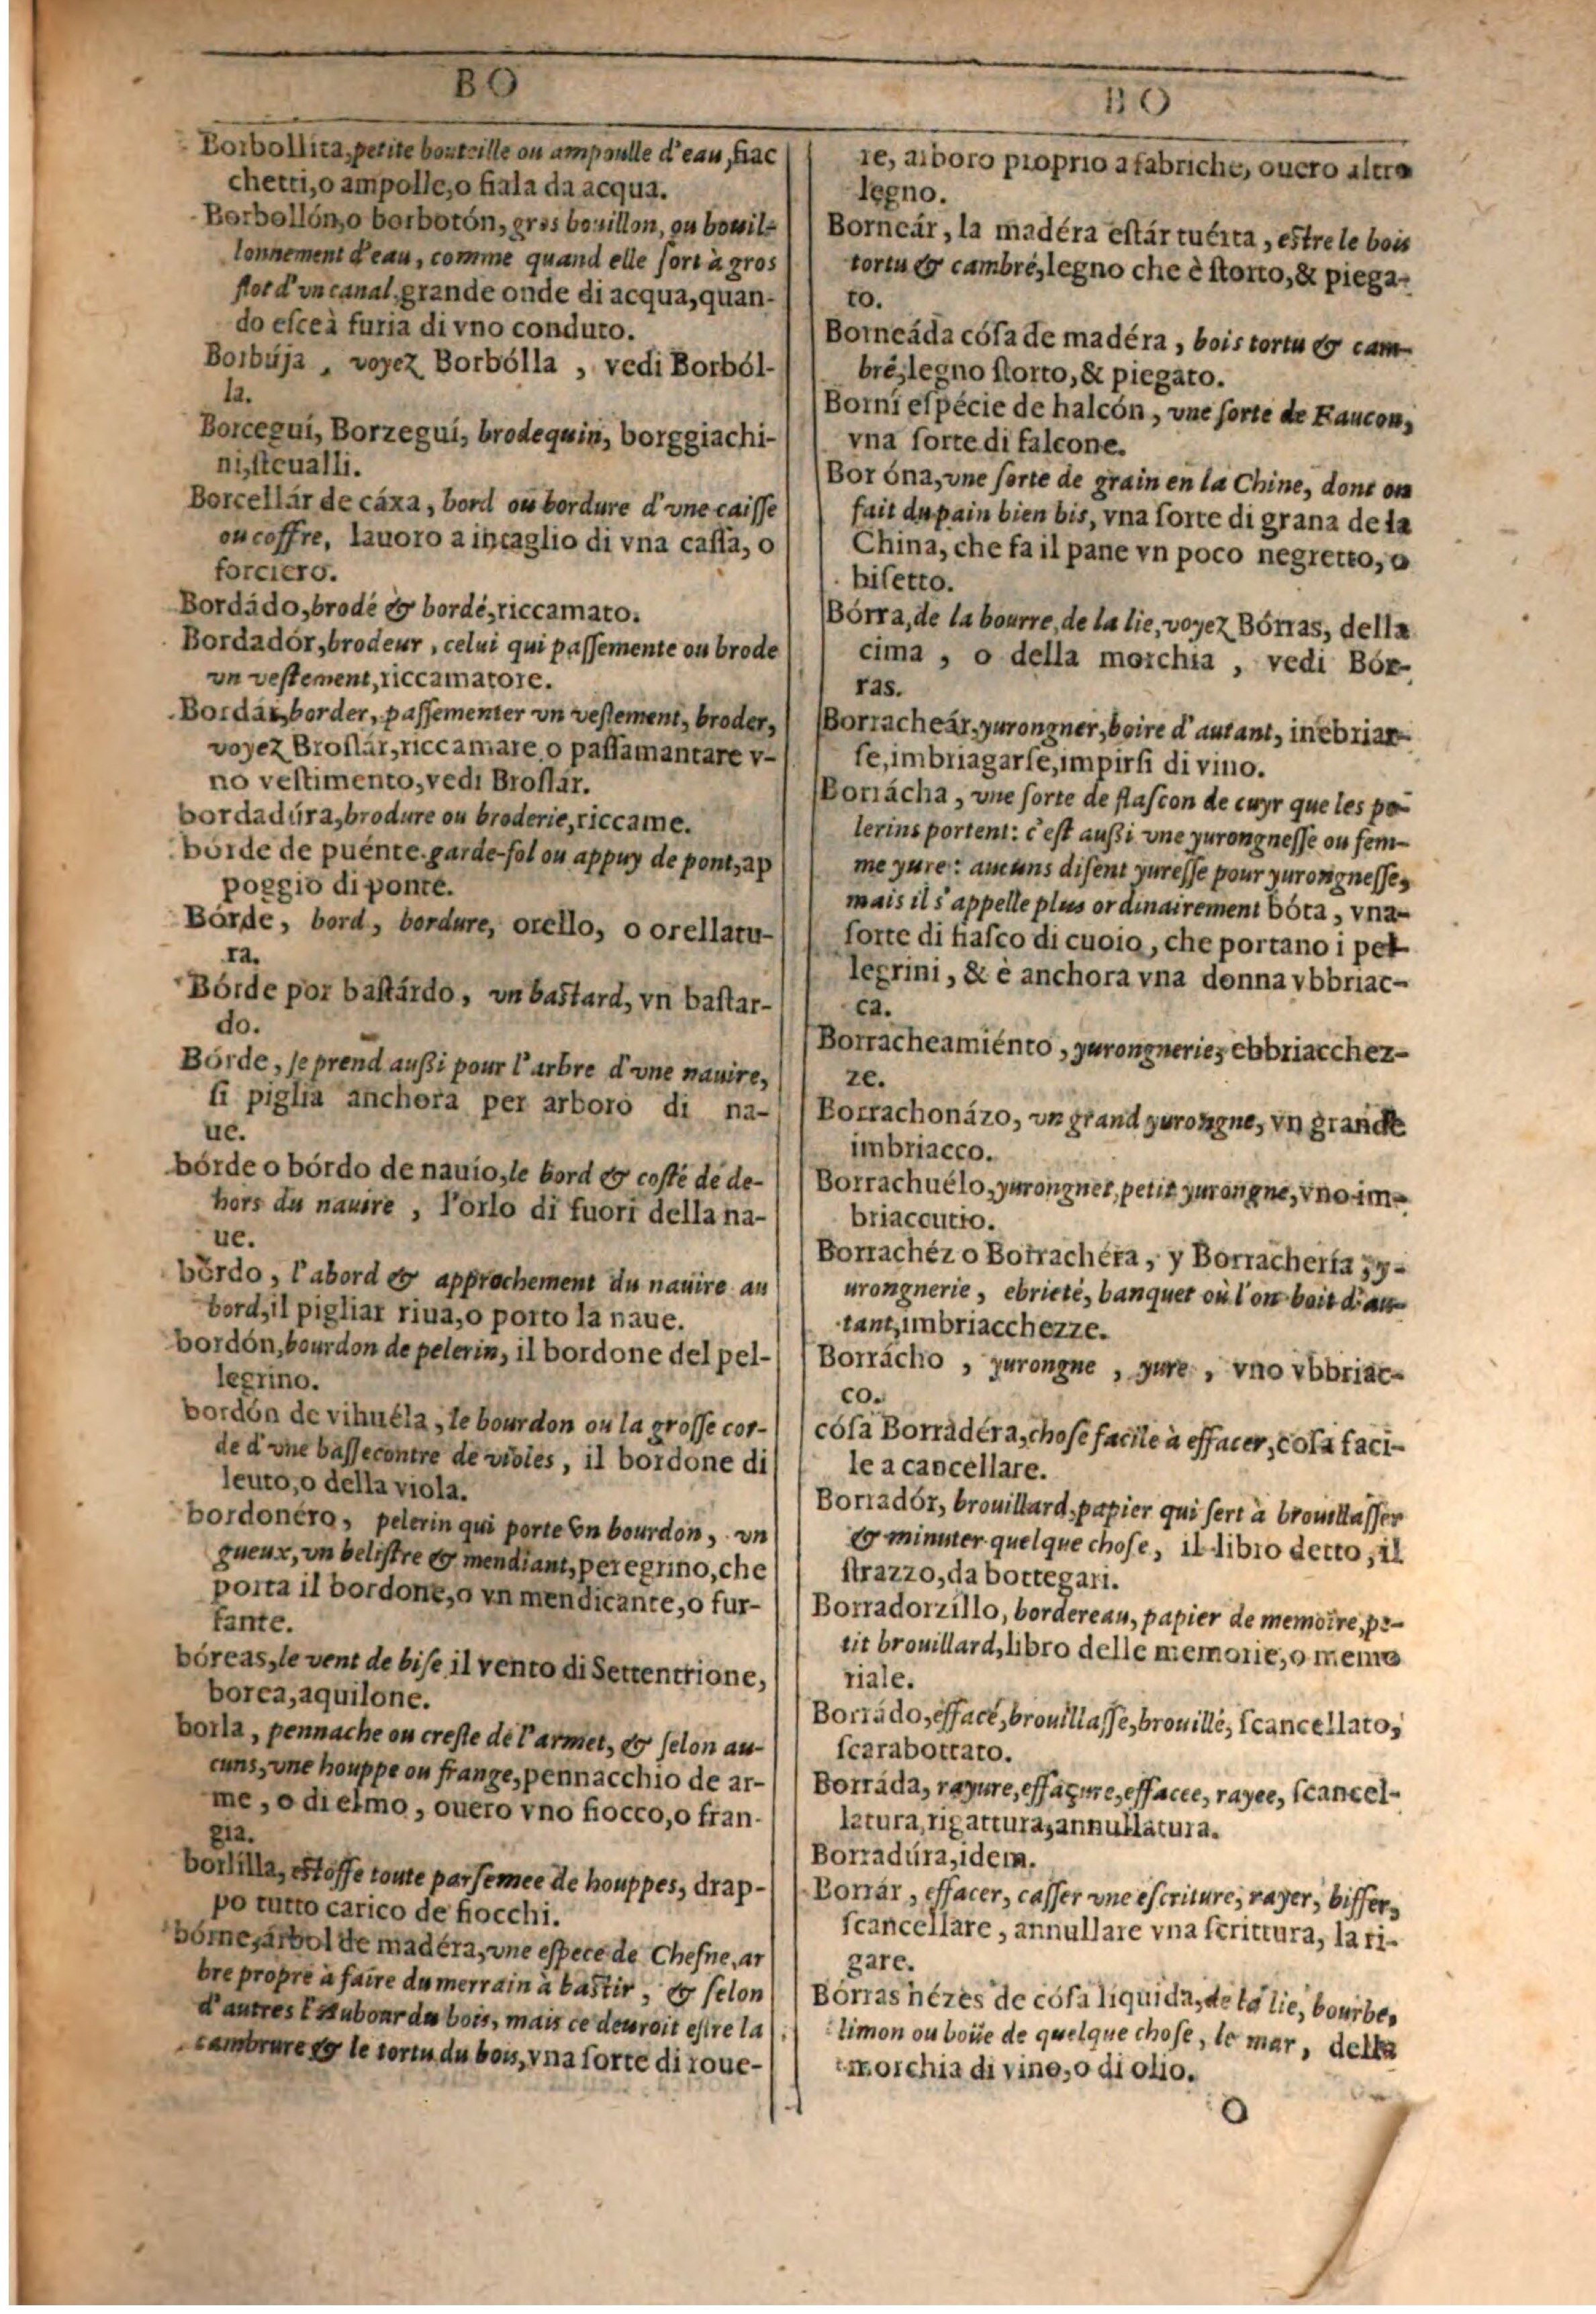 BO
Borbollita, petite bouteille ou ampoulle d'eau, fiac
chetti, o ampolle, o fiala da acqua.
Borbollón, o borbotón, gros bouillon, ou bouil-
lonnement d'eau, comme quand elle ſort à gros
flot d'vn canal, grande onde di acqua, quan-
do eſce à furia di vno conduto.
Borbúja, voyez Borbólla, vedi Borból-
la.
Borceguí, Borzeguí, brodequin, borggiachi-
ni, ſteualli.
Borcellár de cáxa, bord ou bordure d'vne caiſſe
ou coffre, lauoro a intaglio di vna caſſa, o
forciero.
Bordádo, brodé & bordé, riccamato.
Bordadór, brodeur, celui qui paſſemente ou brode
vn veſtement, riccamatore.
Bordár, border, paſſementer vn veſtement, broder,
voyez Broſlár, riccamare o paſſamantare v-
no veſtimento, vedi Broſlár.
bordadúra, brodure ou broderie, riccame.
bórde de puénte garde-fol ou appuy de pont, ap
poggio di ponte.
Bórde, bord, bordure, orello, o orellatu-
ra.
Bórde por baſtárdo, vn baſtard, vn baſtar-
do.
Bórde, ſe prend auſſi pour l'arbre d'vne nauire,
ſi piglia anchora per arboro di na-
ue.
bórde o bórdo de nauío, le bord & coſté de de-
hors du nauire, l'orlo di fuori della na-
ue.
bórdo, l'abord & approchement du nauire au
bord, il pigliar riua, o porto la naue.
bordón, bourdon de pelerin, il bordone del pel-
legrino.
bordón de vihuéla, le bourdon ou la groſſe cor-
de d'vne baſſecontre de violes, il bordone di
leuto, o della viola.
bordonéro, pelerin qui porte vn bourdon, vn
gueux, vn beliſtre & mendiant, peregrino, che
porta il bordone, o vn mendicante, o fur-
fante.
bóreas, le vent de biſe il vento di Settentrione,
borea, aquilone.
borla, pennache ou creſte de l'armet, & ſelon au-
cuns, vne houppe ou frange, pennacchio de ar-
me, o di elmo, ouero vno fiocco, o fran-
gia.
borlilla, eſtoffe toute parſemee de houppes, drap-
po tutto carico de fiocchi.
bórne, árbol de madéra, vne eſpece de Cheſne, ar
bre propre à faire du merrain à baſtir, & ſelon
d'autres l'Aubour du bois, mais ce deuroit eſtre la
cambrure & le tortu du bois, vna ſorte di roue-
BO
re, arboro proprio a fabriche, ouero altro
legno.
Borneár, la madéra eſtár tuérta, eſtre le bois
tortu & cambré, legno che è ſtorto, & piega-
to.
Borneáda cóſa de madéra, bois tortu & cam-
bré, legno ſtorto, & piegato.
Borní eſpécie de halcón, vne ſorte de Faucon,
vna ſorte di falcone.
Bor óna, vne ſorte de grain en la Chine, dont on
fait du pain bien bis, vna ſorte di grana de la
China, che fa il pane vn poco negretto, o
biſetto.
Bórra, de la bourre, de la lie, voyez Bórras, della
cima, o della morchia, vedi Bór-
ras.
Borracheár, yurongner, boire d'autant, inebriar-
ſe, imbriagarſe, impirſi di vino.
Borrácha, vne ſorte de flaſcon de cuyr que les pe-
lerins portent: c'eſt auſſi vne yurongneſſe ou fem-
me yure: aucuns diſent yureſſe pour yurongneſſe,
mais il s'appelle plus ordinairement bóta, vna
ſorte di fiaſco di cuoio, che portano i pel
legrini, & è anchora vna donna vbbriac-
ca.
Borracheamiénto, yurongnerie, ebbriacchez-
ze.
Borrachonázo, vn grand yurongne, vn grande
imbriacco.
Borrachuélo, yurongnet, petit yurongne, vno im-
briaccutio.
Borrachéz o Borrachéra, y Borrachería, y-
urongnerie, ebrieté, banquet où l'on boit d'au-
tant, imbriacchezze.
Borrácho, yurongne, yure, vno vbbriac-
co.
cóſa Borradéra, choſe facile à effacer, coſa faci-
le a cancellare.
Borradór, brouillard, papier qui ſert à brouillaſſer
& minuter quelque choſe, il libro detto, il
ſtrazzo, da bottegari.
Borradorzíllo, bordereau, papier de memoire, pe-
tit brouillard, libro delle memorie, o memo
riale.
Borrádo, effacé, brouillaſſe, brouillé, ſcancellato,
ſcarabottato.
Borráda, rayure, effaçure, effacee, rayee, ſcancel-
latura, rigattura, annullatura.
Borradúra, idem.
Borrár, effacer, caſſer vne eſcriture, rayer, biffer,
ſcancellare, annullare vna ſcrittura, la ri-
gare.
Bórras hézes de cóſa líquida, de la lie, bourbe,
limon ou boüe de quelque choſe, le mar, della
morchia di vino, o di olio.
O